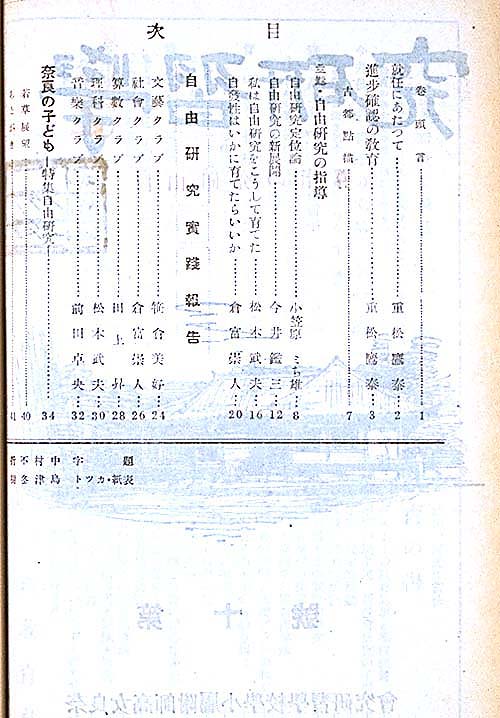 目次
巻頭言……1
就任にあたつて……重松鷹泰…2
進歩確認の教育……重松鷹泰…3
古都點描……7
自由研究の指導
自由研究定位論……小笠原…8
自由研究の新展開……今井鑑三…12
私は自由研究をこうして育てた……松本武夫…16
自發性はいかに育てたらいいか……倉富崇人…20
自由研究實踐報告
文藝クラブ……笹倉美好…24
社會クラブ……倉富崇人…26
算數クラブ……田上昇…28
理科クラブ……松本武夫…30
音樂クラブ……前田卓央…32
奈良の子ども―特集自由研究……34
若草展望……40
題字 中村不
表紙・カツト 島津冬
第十號
奈良女高師附屬小學校學習研究會